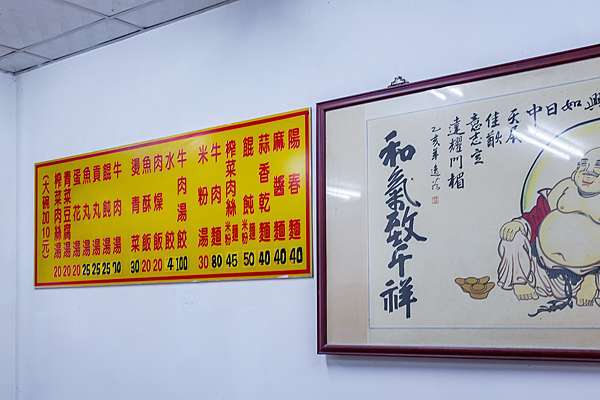 陽春麵 40
麻醬麵 40
蒜香乾麵 40
餛飩 麵 米粉 50
榨菜肉絲 麵 米粉 45
牛肉麵 80
米粉湯 30
牛肉湯餃 100
水餃 4
肉燥飯 20
魚酥飯 20
燙青菜 30
牛肉湯 70
餛飩湯 25
貢丸湯 25
魚丸湯 25
蛋花湯 20
青菜豆腐湯 20
榨菜肉絲湯 20
(大碗加10元)
興
如
日
中
天展
佳猷
意志宏
達耀門楣
乙亥年逸
和氣致千祥